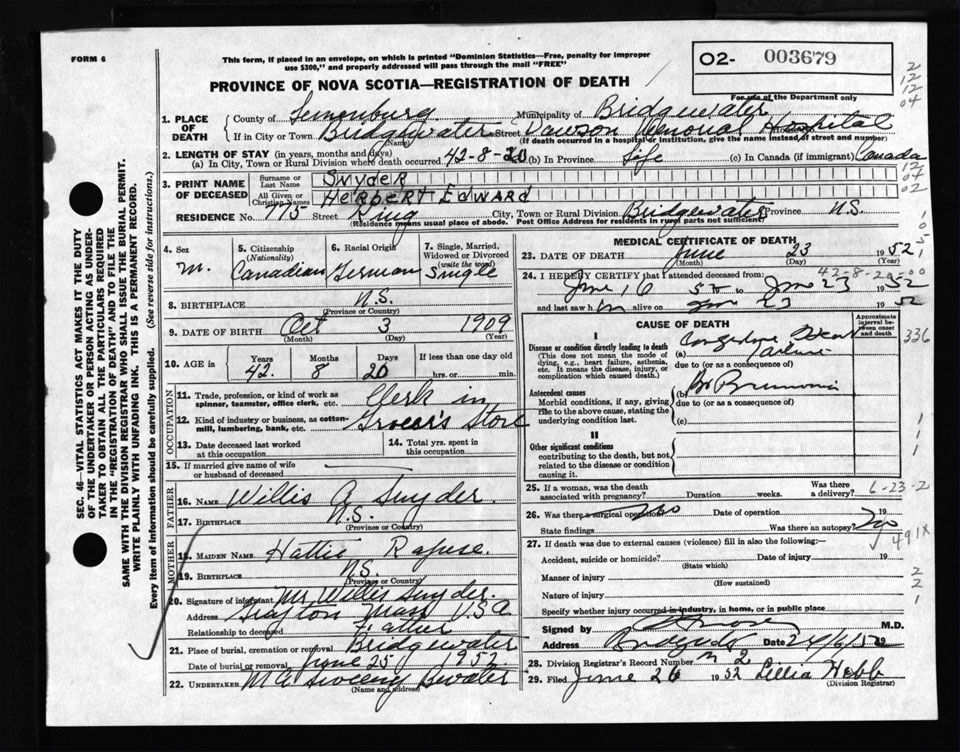 FORM 6
This form, if placed in an envelope, on which is printed "Dominion Statistics—Free, penalty for improper
use $300," and properly addressed will pass through the mail "FREE"
O2- 003679
For use of the Department only
PROVINCE OF NOVA SCOTIA—REGISTRATION OF DEATH
2
12
12
04
1. PLACE OF DEATH
County of Lunenburg Municipality of Bridgewater
If in City or Town Bridgewater Street Dawson Memorial Hospital
(Name) (If death occurred in a hospital or institution, give the name instead of street and number)
2. LENGTH OF STAY (in years, months and days)
(a) In City, Town or Rural Division where death occurred 42-8-20 (b) In Province Life (c) In Canada (if immigrant) Canada
12
04
02
3. PRINT NAME OF DECEASED
Surname or Last Name SNYDER
All Given or Christian Names HERBERT EDWARD
RESIDENCE No. 775 Street King City, Town or Rural Division Bridgewater Province N.S.
(Residence means usual place of abode. Post Office Address for residents in rural parts not sufficient)
4. Sex M.
5. Citizenship (Nationality) Canadian
6. Racial Origin German
7. Single, Married, Widowed or Divorced (write the word) Single
8. BIRTHPLACE N.S.
(Province or Country)
9. DATE OF BIRTH Oct 3 1909
(Month) (Day) (Year)
10. AGE in Years 42 Months 8 Days 20 If less than one day old
hrs. or min.
OCCUPATION
11. Trade, profession, or kind of work as spinner, teamster, office clerk, etc. Clerk in
12. Kind of industry or business, as cotton-mill, lumbering, bank, etc. Grocer's Store
13. Date deceased last worked at this occupation
14. Total yrs. spent in this occupation
15. If married give name of wife or husband of deceased
FATHER
16. NAME Willis A Snyder.
17. BIRTHPLACE N.S.
(Province or Country)
MOTHER
18. MAIDEN NAME Hattie Rafuse.
19. BIRTHPLACE N.S.
(Province or Country)
20. Signature of informant Mr Willis Snyder.
Address Grafton Mass U.S.A
Relationship to deceased Father
21. Place of burial, cremation or removal Bridgewater
Date of burial or removal June 25 1952
22. UNDERTAKER M A Sweeny Bwater
(Name and address)
MEDICAL CERTIFICATE OF DEATH
23. DATE OF DEATH June 23 1952
(Month) (Day) (Year)
42-8-20-00
24. I HEREBY CERTIFY that I attended deceased from
June 16 52 to June 23 1952
and last saw h m alive on June 23 1952
CAUSE OF DEATH
Approximate interval between onset and death
336
I
Disease or condition directly leading to death
(This does not mean the mode of dying, e.g., heart failure, asthenia, etc. It means the disease, injury, or complication which caused death.)
(a) Congestive Heart Failure
due to (or as a consequence of)
Antecedent causes
Morbid conditions, if any, giving rise to the above cause, stating the underlying condition last.
(b)
due to (or as a consequence of)
(c)
II
Other significant conditions
contributing to the death, but not related to the disease or condition causing it.
1
1
1
25. If a woman, was the death associated with pregnancy? Duration weeks. Was there a delivery? 6-23-2
26. Was there a surgical operation? No Date of operation 19
State findings Was there an autopsy? No
491X
27. If death was due to external causes (violence) fill in also the following:—
Accident, suicide or homicide? Date of injury 19
(State which)
Manner of injury
(How sustained)
Nature of injury
Specify whether injury occurred in industry, in home, or in public place
2
2
1
Signed by M.D.
Address Date 24/6/52
28. Division Registrar's Record Number 2
29. Filed June 26 1952 Lillia Hebb
(Division Registrar)
SEC. 46—VITAL STATISTICS ACT MAKES IT THE DUTY
OF THE UNDERTAKER OR PERSON ACTING AS UNDER-
TAKER TO OBTAIN ALL THE PARTICULARS REQUIRED
IN THE "REGISTRATION OF DEATH" AND TO FILE THE
SAME WITH THE DIVISION REGISTRAR WHO SHALL ISSUE THE BURIAL PERMIT.
WRITE PLAINLY WITH UNFADING INK. THIS IS A PERMANENT RECORD.
Every item of information should be carefully supplied. (See reverse side for instructions.)